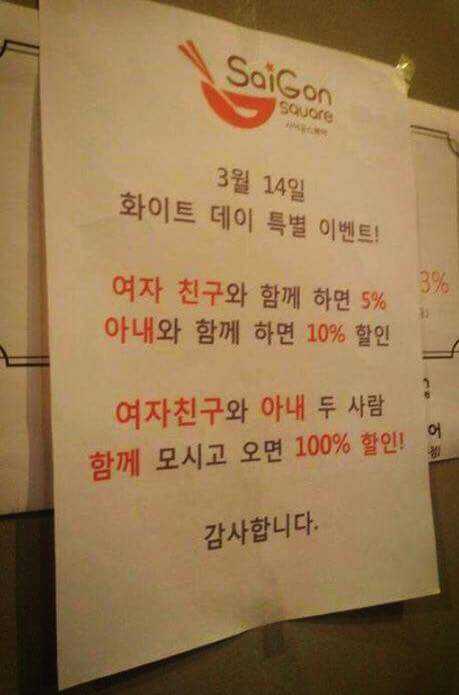 SaiGon
square
사이공스퀘어
3월 14일
화이트 데이 특별 이벤트!
여자 친구와 함께 하면 5%
아내와 함께 하면 10% 할인
여자친구와 아내 두 사람
함께 모시고 오면 100% 할인!
감사합니다.
3%
어